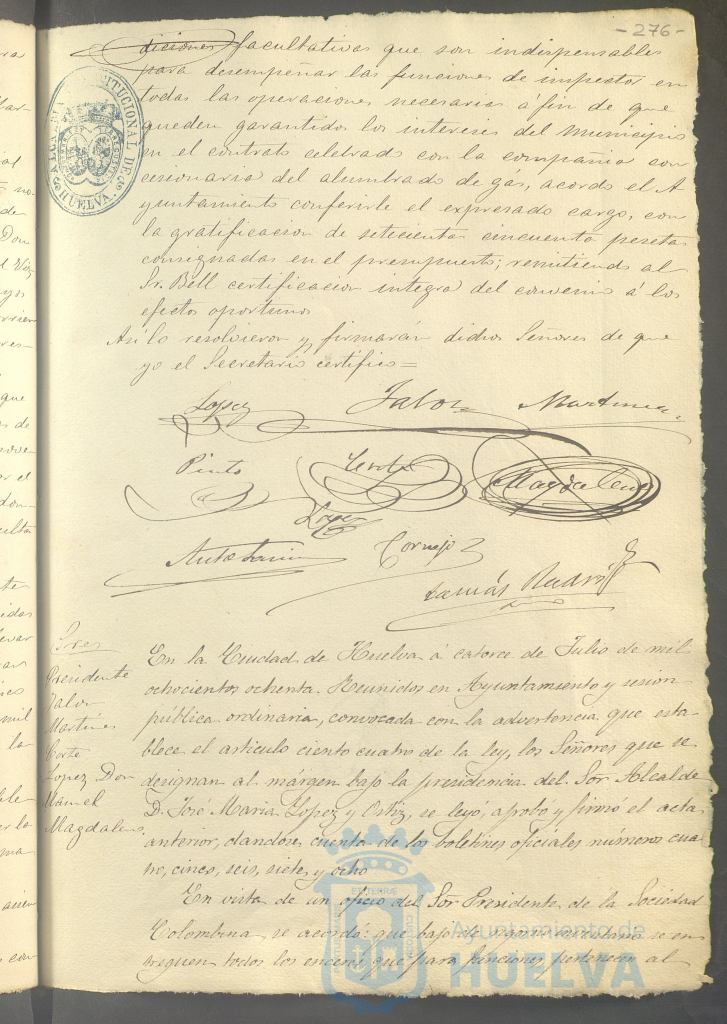 - 276 -
diciones facultativas que son indispensables
para desempeñar las funciones de inspector en
todas las operaciones necesarias á fin de que
queden garantidos los intereses del Municipio
en el contrato celebrado con la compañia con
cesionaria del alumbrado de gás, acordo el A
yuntamiento conferirle el expresado cargo, con
la gratificacion de setecientas cincuenta pesetas
consignadas en el presupuesto; remitiendo al
Sr. Bell certificacion integra del convenio á los
efectos oportunos
Asi lo resolvieron y firmarán dichos Señores de que
yo el Secretario certifico =
Lopez Jalon Martinez
Pinto Magdalena
Lopez
Cornejo
Tomás
Sores
Presidente
Jalon
Martinez
Corte
Lopez Don
Manuel
Magdalena
En la Ciudad de Huelva á catorce de Julio de mil
ochocientos ochenta. Reunidos en Ayuntamiento y sesion
pública ordinaria, convocada con la advertencia que esta
blece el articulo ciento cuatro de la ley, los Señores que se
designan al márgen bajo la presidencia del Sor Alcalde
D. José Maria Lopez y Ortiz, se leyó, aprobó y firmó el acta
anterior, dandose cuenta de los boletines oficiales números cua
tro, cinco, seis, siete y ocho
En vista de un oficio del Sor Presidente de la Sociedad
Colombina se acordó: que bajo de se en
treguen todos los enseres que para funciones pertenecen al
HUELVA
Ayuntamiento de
HUELVA